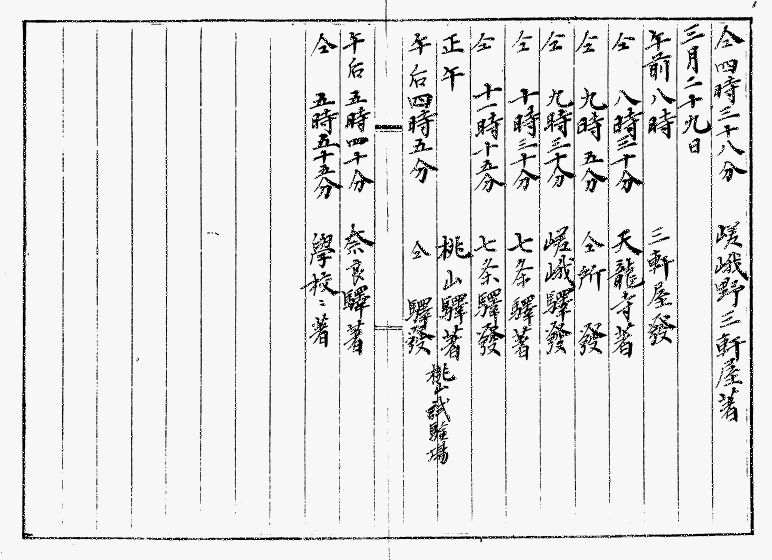 仝 四時三十八分 嵯峨野三軒屋著
三月二十九日
午前八時 三軒屋發
仝 八時三十分 天龍寺著
仝 九時五分 仝所 發
仝 九時三十分 嵯峨驛發
仝 十時三十分 七条驛著
仝 十一時十五分 七条驛發
正午 桃山驛著 桃山試驗場
午后四時五分 仝 驛發
午后五時四十分 奈良驛著
仝 五時五十五分 學校ニ著